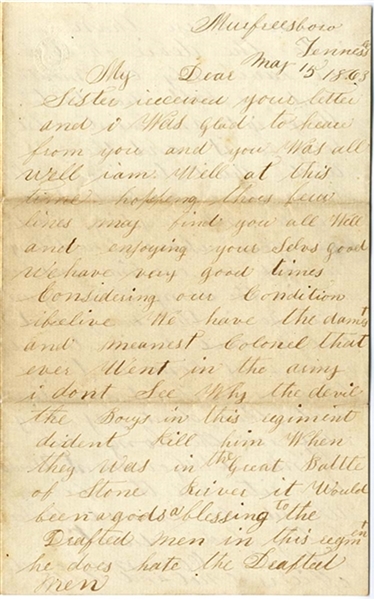 Murfreesboro
Tenness
May 15 1863
My Dear
Sister received your letter
and i Was glad to hear
from you and you Was all
Well iam Well at this
time hopeing thees few
lines may find you all Well
and enjoying your Selvs good
We have very good times
Considering our Condition
ibeelive We have the damt
and meanest Colonel that
ever Went in the army
i dont See Why the devil
the Boys in this regiment
dident Kill him When
they Was in the Great Battle
of Stone River it Would
been a gods a blessing to the
Drafted men in this regment
he does hate the Drafted
Men